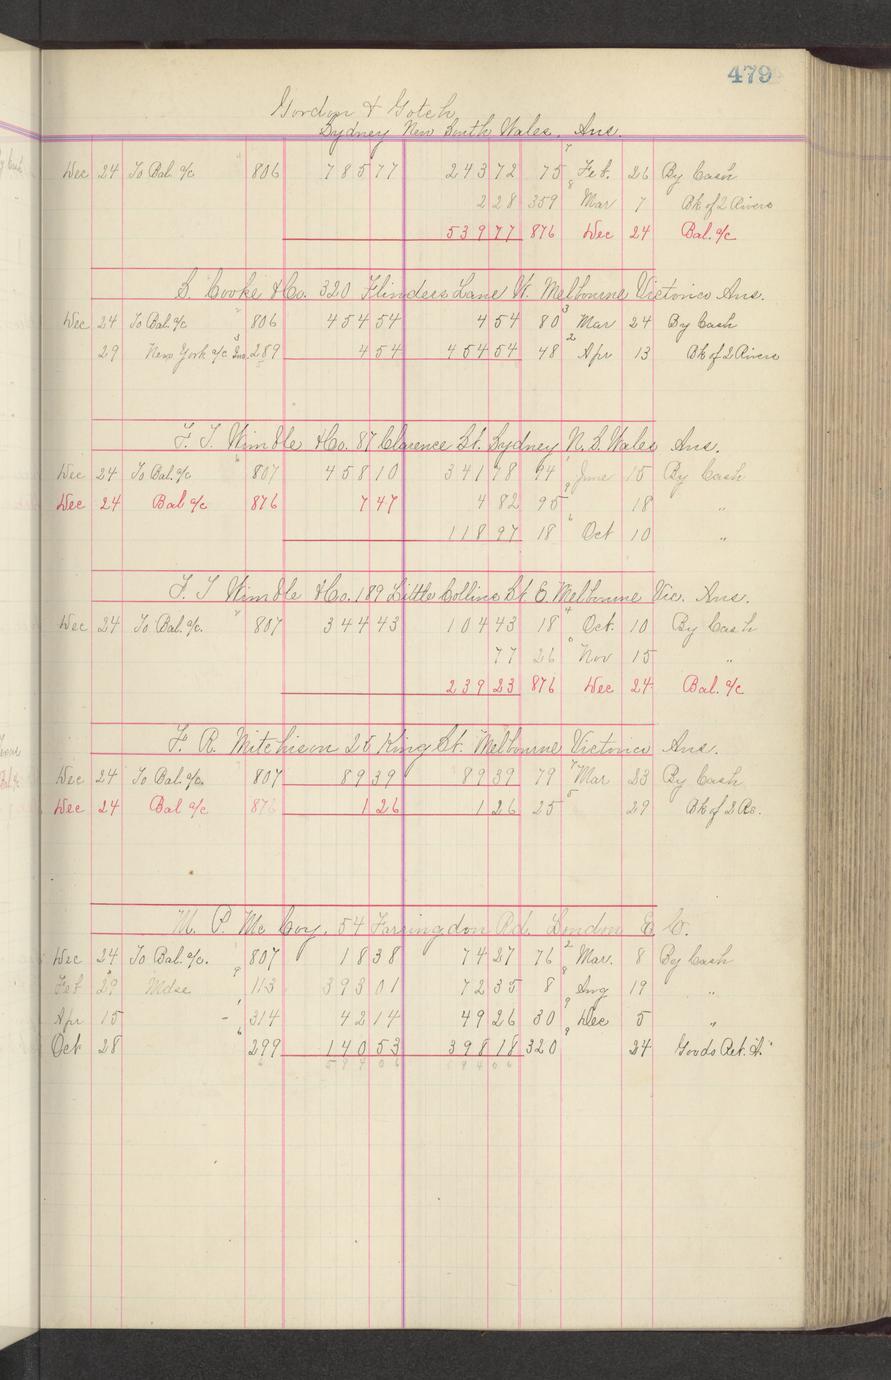 479
Gordon & Gotch
Sydney New South Wales, Aus.
Dec 24 To Bal. a/c 806 785 77 243 72 75 7 Feb. 26 By Cash
2 28 359 8 Mar 7 Bk of 2 Rivers
539 77 876 Dec 24 Bal. a/c
S. Cooke & Co. 320 Flinders Lane W. Melbourne Victoria Aus.
Dec 24 To Bal. a/c 806 454 54 4 54 80 3 Mar 24 By Cash
29 New York a/c 289 4 54 454 54 48 2 Apr 13 Bk of 2 Rivers
F. T. Wimble & Co. 87 Clarence St. Sydney N. S. Wales Aus.
Dec 24 To Bal. a/c 807 458 10 341 78 94 1 June 15 By Cash
Dec 24 Bal a/c 876 7 47 4 82 95 9 18 "
118 97 18 6 Oct 10 "
F. T. Wimble & Co. 189 Little Collins St. E. Melbourne Vic. Aus.
Dec 24 To Bal. a/c. 807 344 43 104 43 18 4 Oct. 10 By Cash
77 26 6 Nov 15 "
239 23 876 Dec 24 Bal. a/c
F. R. Mitchison 25 King St. Melbourne Victoria Aus.
Dec 24 To Bal. a/c. 807 89 39 89 39 79 7 Mar 23 By Cash
Dec 24 Bal a/c 876 1 26 1 26 25 5 29 Bk of 2 Rs.
M. P. McCoy, 54 Farringdon Rd. London E. C.
Dec 24 To Bal. a/c. 807 18 38 74 27 76 2 Mar. 8 By Cash
Feb 29 Mdse 9 113 393 01 72 35 8 8 Aug 19 "
Apr 15 - 1 314 42 14 49 26 30 9 Dec 5 "
Oct 28 6 299 140 53 398 18 320 9 24 Goods Ret. A.
594 06 594 06